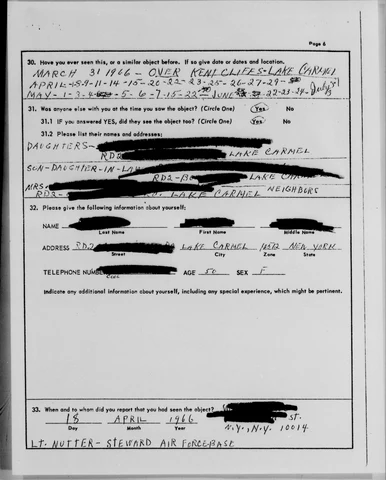 Page 6
30. Have you ever seen this, or a similar object before. If so give date or dates and location.
MARCH 31 1966 - OVER KENT CLIFFS - LAKE CARMEL
APRIL - 8-9-11-14-15-26-22-23-25-26-27-29-
MAY - 1-3-4-5-6-7-15-22- JUNE 22-23-24- July
31. Was anyone else with you at the time you saw the object? (Circle One) Yes No
31.1 If you answered YES, did they see the object too? (Circle One) Yes No
31.2 Please list their names and addresses:
DAUGHTERS-
RD2 LAKE CARMEL
SON-DAUGHTER-IN-LAW
RD2-BOX LAKE CARMEL
MRS. NEIGHBORS
RD2- LAKE CARMEL
32. Please give the following information about yourself:
NAME
Last Name First Name Middle Name
ADDRESS RD2 LAKE CARMEL 10512 NEW YORK
Street City Zone State
TELEPHONE NUMBER AGE 50 SEX F
Indicate any additional information about yourself, including any special experience, which might be pertinent.
33. When and to whom did you report that you had seen the object?
18 APRIL 1966 ST.
Day Month Year N.Y., N.Y. 10014
LT. NUTTER - STEWARD AIR FORCE BASE